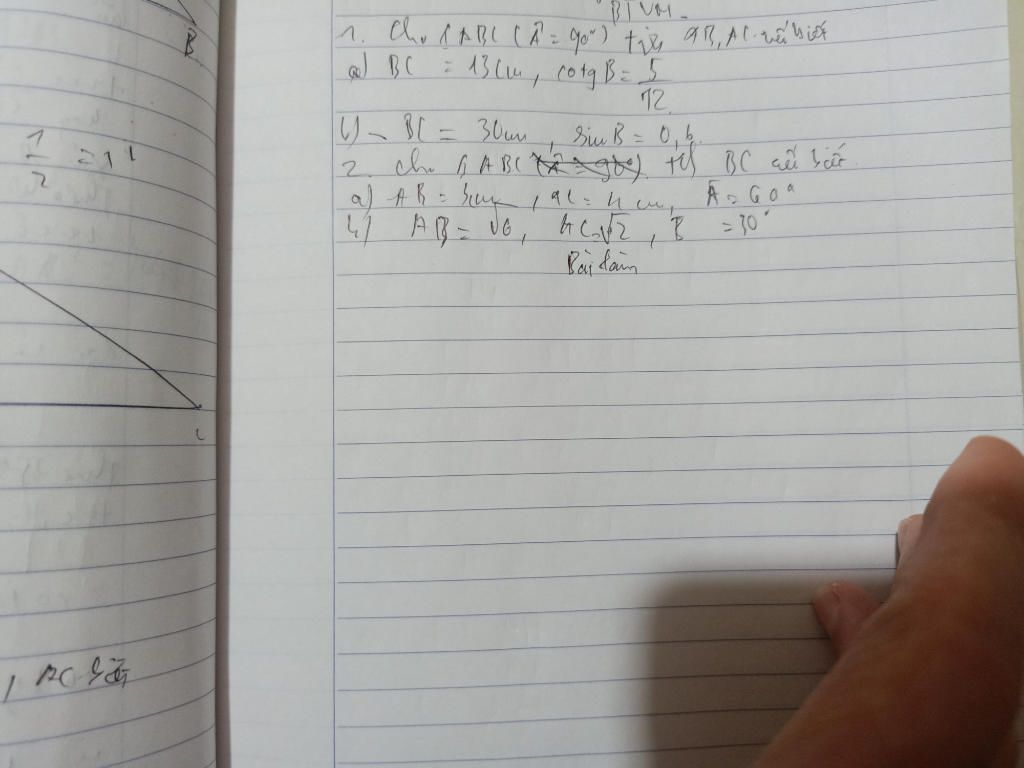 B
1/2 = 1
C
AC biết
BTVN.
1. Cho Δ ABC (Â = 90°) tính AB, AC nếu biết
a) BC = 13cm, cotg B = 5/12
b) - BC = 30cm, sin B = 0,6
2. Cho Δ ABC BC nếu biết
a) AB = 3cm, AC = 4cm, Â = 60°
b) AB = √6, AC = √2, B = 30°
Bài làm